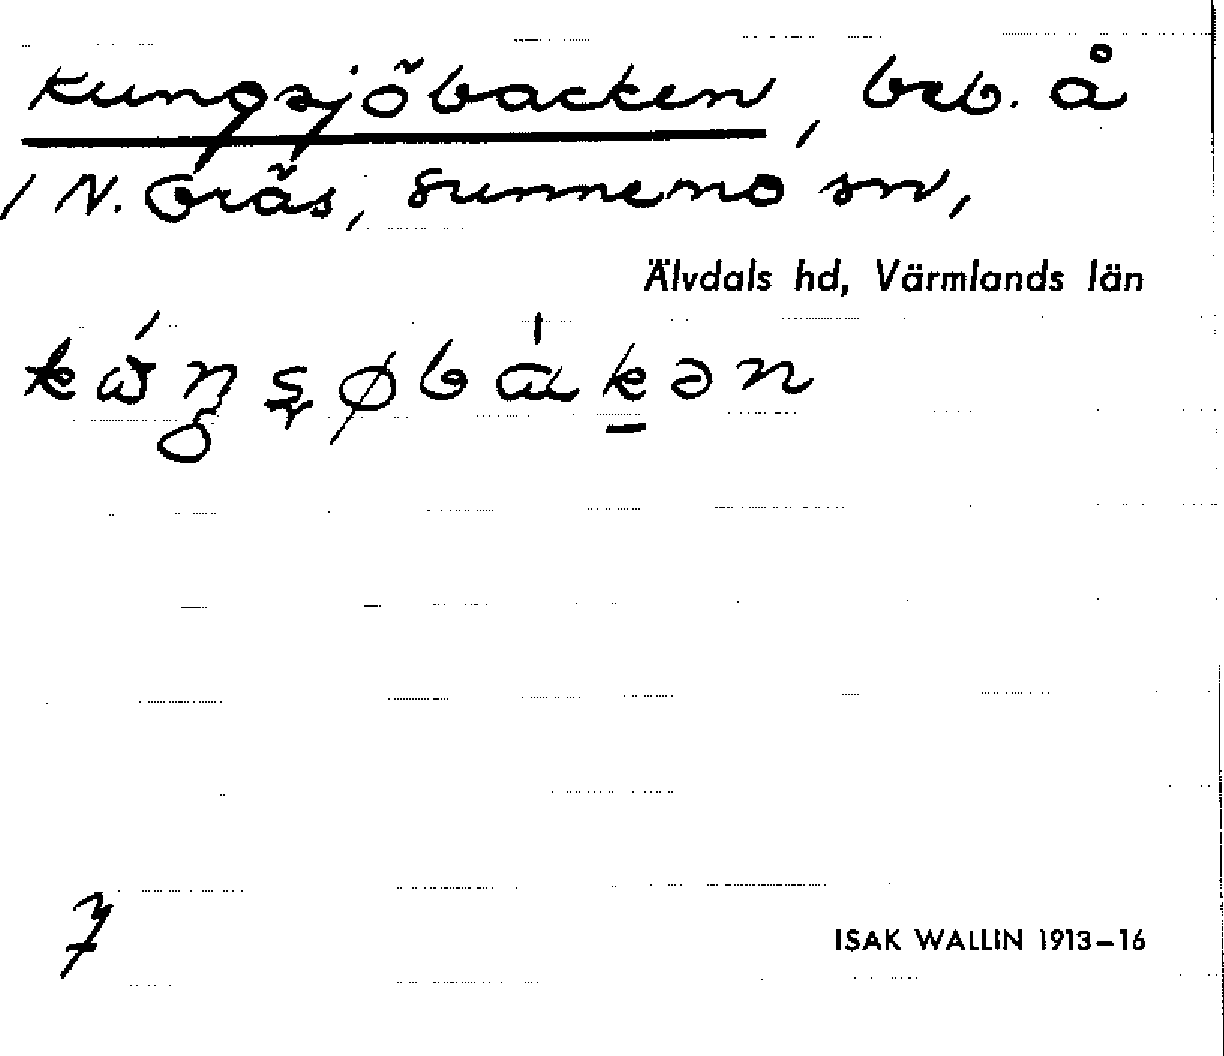 Kungsjöbacken, beb. å
N. Gräs, Sunnemo sn,
Älvdals hd, Värmlands län
7
ISAK WALLIN 1913–16